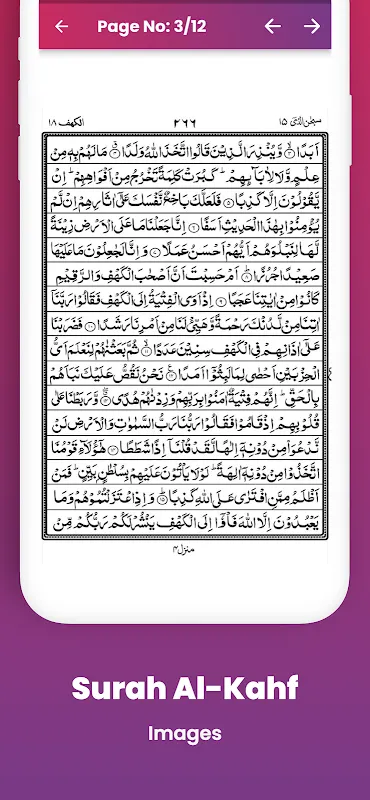 Page No: 3/12
الكهف ١٨
٢٦٦
سبحن الذی ١٥
اَبَدًا ۙ﴿۳﴾ وَّیُنْذِرَ الَّذِیْنَ قَالُوا اتَّخَذَ اللّٰهُ وَلَدًا ۗ﴿۴﴾ مَا لَهُمْ بِهٖ مِنْ
عِلْمٍ وَّلَا لِاٰبَآىِٕهِمْ ؕ كَبُرَتْ كَلِمَةً تَخْرُجُ مِنْ اَفْوَاهِهِمْ ؕ اِنْ
یَّقُوْلُوْنَ اِلَّا كَذِبًا ﴿۵﴾ فَلَعَلَّكَ بَاخِعٌ نَّفْسَكَ عَلٰۤی اٰثَارِهِمْ اِنْ لَّمْ
یُؤْمِنُوْا بِهٰذَا الْحَدِیْثِ اَسَفًا ﴿۶﴾ اِنَّا جَعَلْنَا مَا عَلَی الْاَرْضِ زِیْنَةً
لَّهَا لِنَبْلُوَهُمْ اَیُّهُمْ اَحْسَنُ عَمَلًا ﴿۷﴾ وَاِنَّا لَجٰعِلُوْنَ مَا عَلَیْهَا
صَعِیْدًا جُرُزًا ﴿۸﴾ اَمْ حَسِبْتَ اَنَّ اَصْحٰبَ الْكَهْفِ وَالرَّقِیْمِ
كَانُوْا مِنْ اٰیٰتِنَا عَجَبًا ﴿۹﴾ اِذْ اَوَی الْفِتْیَةُ اِلَی الْكَهْفِ فَقَالُوْا رَبَّنَاۤ
اٰتِنَا مِنْ لَّدُنْكَ رَحْمَةً وَّهَیِّئْ لَنَا مِنْ اَمْرِنَا رَشَدًا ﴿۱۰﴾ فَضَرَبْنَا
عَلٰۤی اٰذَانِهِمْ فِی الْكَهْفِ سِنِیْنَ عَدَدًا ﴿۱۱﴾ ثُمَّ بَعَثْنٰهُمْ لِنَعْلَمَ اَیُّ
الْحِزْبَیْنِ اَحْصٰی لِمَا لَبِثُوْۤا اَمَدًا ﴿۱۲﴾ نَحْنُ نَقُصُّ عَلَیْكَ نَبَاَهُمْ
بِالْحَقِّ ؕ اِنَّهُمْ فِتْیَةٌ اٰمَنُوْا بِرَبِّهِمْ وَزِدْنٰهُمْ هُدًی ﴿۱۳﴾ وَّرَبَطْنَا عَلٰی
قُلُوْبِهِمْ اِذْ قَامُوْا فَقَالُوْا رَبُّنَا رَبُّ السَّمٰوٰتِ وَالْاَرْضِ لَنْ
نَّدْعُوَا۠ مِنْ دُوْنِهٖۤ اِلٰهًا لَّقَدْ قُلْنَاۤ اِذًا شَطَطًا ﴿۱۴﴾ هٰۤؤُلَآءِ قَوْمُنَا
اتَّخَذُوْا مِنْ دُوْنِهٖۤ اٰلِهَةً ؕ لَوْلَا یَاْتُوْنَ عَلَیْهِمْ بِسُلْطٰنٍۭ بَیِّنٍ ؕ فَمَنْ
اَظْلَمُ مِمَّنِ افْتَرٰی عَلَی اللّٰهِ كَذِبًا ﴿۱۵﴾ وَاِذِ اعْتَزَلْتُمُوْهُمْ وَمَا
یَعْبُدُوْنَ اِلَّا اللّٰهَ فَاْوٗۤا اِلَی الْكَهْفِ یَنْشُرْ لَكُمْ رَبُّكُمْ مِّنْ
منزل ۴
Surah Al-Kahf
Images